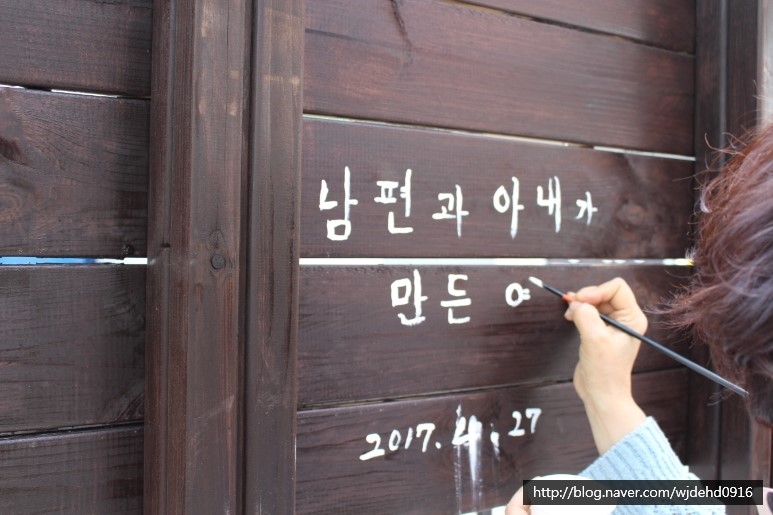 남편과 아내가
만든 여
2017. 4. 27
http://blog.naver.com/wjdehd0916